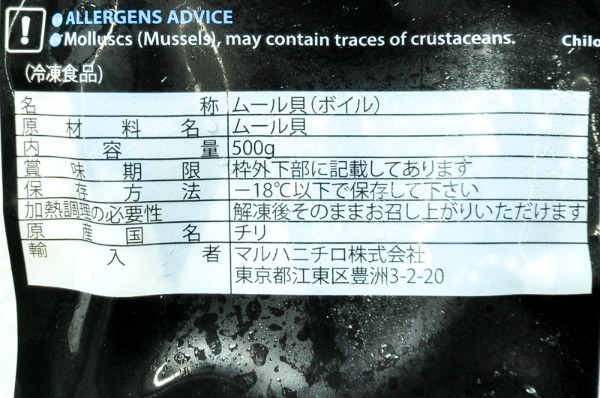 ALLERGENS ADVICE
Molluscs (Mussels), may contain traces of crustaceans.
Chilo
(冷凍食品)
名称 ムール貝(ボイル)
原材料名 ムール貝
内容量 500g
賞味期限 枠外下部に記載してあります
保存方法 -18℃以下で保存して下さい
加熱調理の必要性 解凍後そのままお召し上がりいただけます
原産国名 チリ
輸入者 マルハニチロ株式会社
東京都江東区豊洲3-2-20